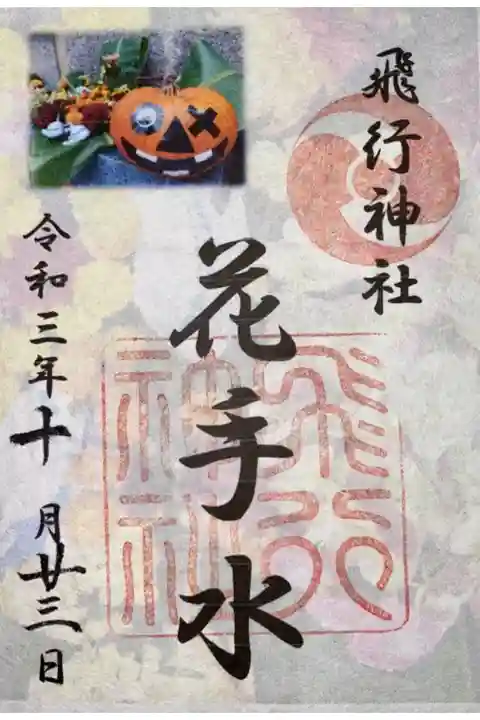 飛行神社
花手水
飛行
神社
令和三年十月廿三日